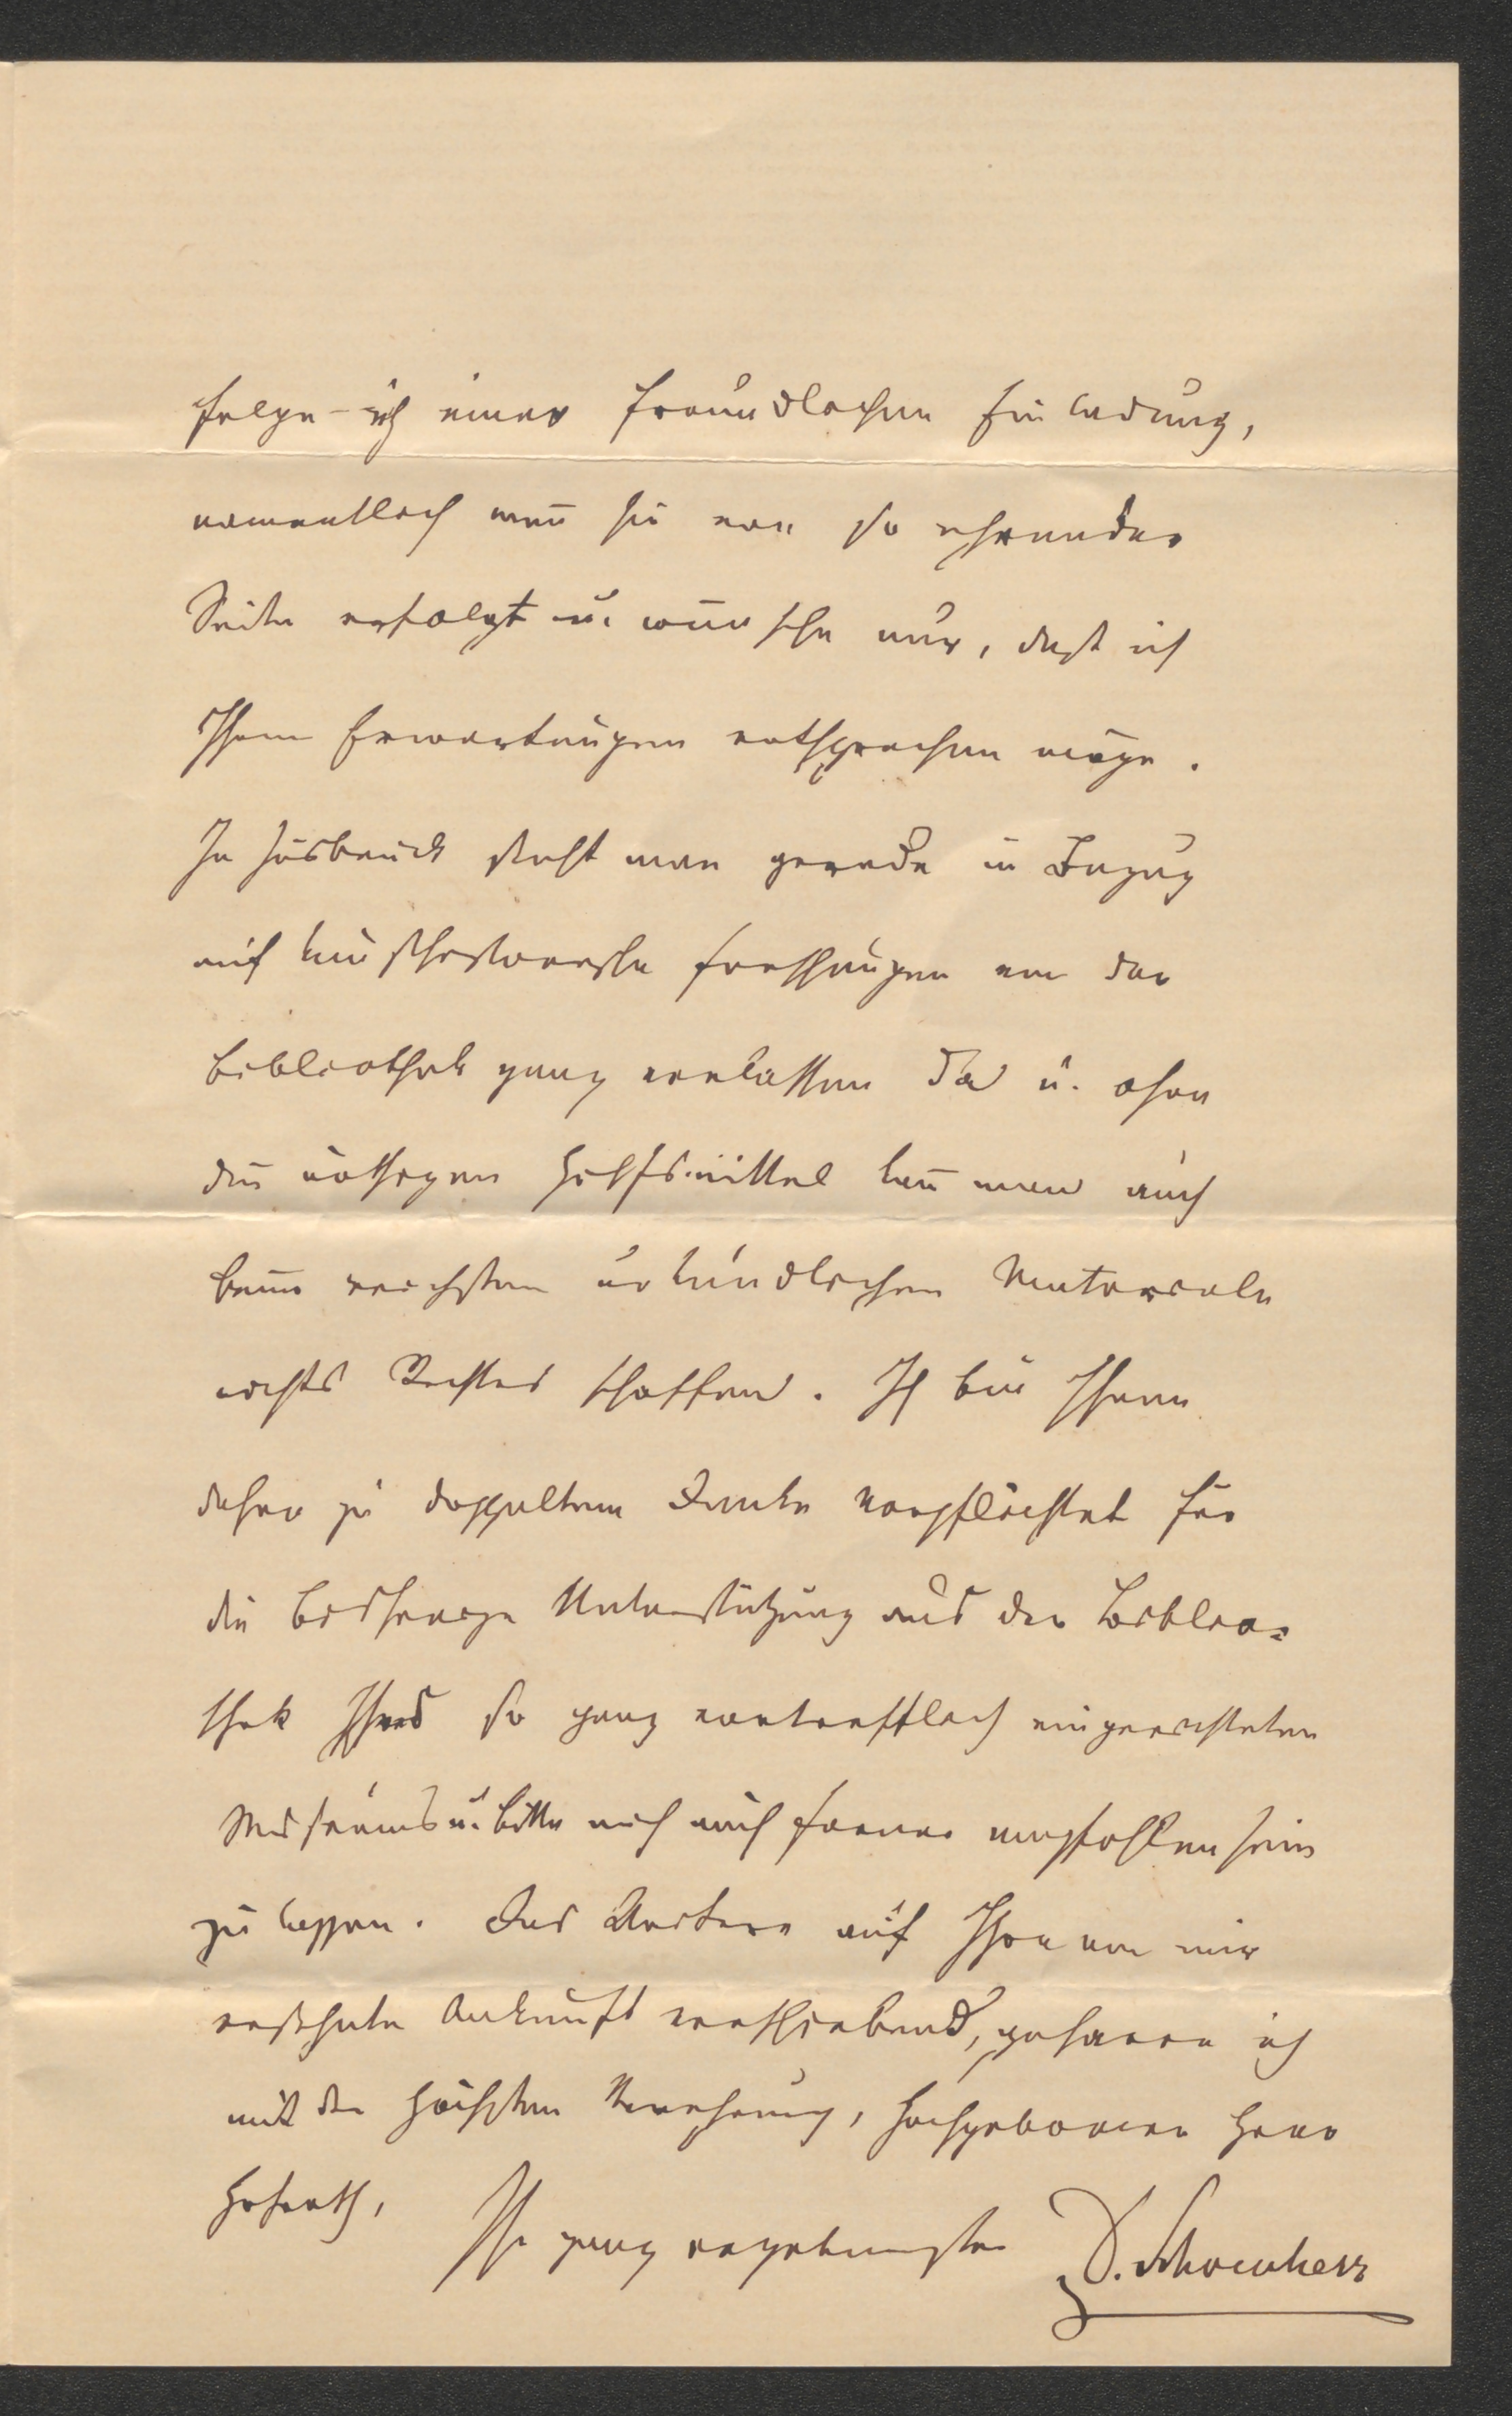 folge ich einer freundlichen Einladung,
namentlich weñ sie von so ehrender
Seite erfolgt u. wünsche nur, daß ich
Ihren Erwartungen entsprechen möge.
In Insbruck steht man gerade in Bezug
auf kunsthistorische Forschungen von der
Bibliothek ganz verlassen da u. ohne
die nöthigen Hilfsmittel kañ man auch
beim reichsten urkundlichen Materiale
nichts Rechtes schaffen. Ich bin Ihnen
daher zu doppeltem Danke verpflichtet für
die bisherige Unterstützung aus der Biblio=
thek Ihres so ganz vortrefflich eingerichteten
Museums u. bitte mich auch ferner empfohlen sein
zu lassen. Das Weitere auf Ihre von mir
ersehnte Ankunft verschiebend, geharre ich
mit der höchsten Verehrung, hochgeborener Herr
Hofrath,
Ihr ganz ergebenster D. Schoenherr